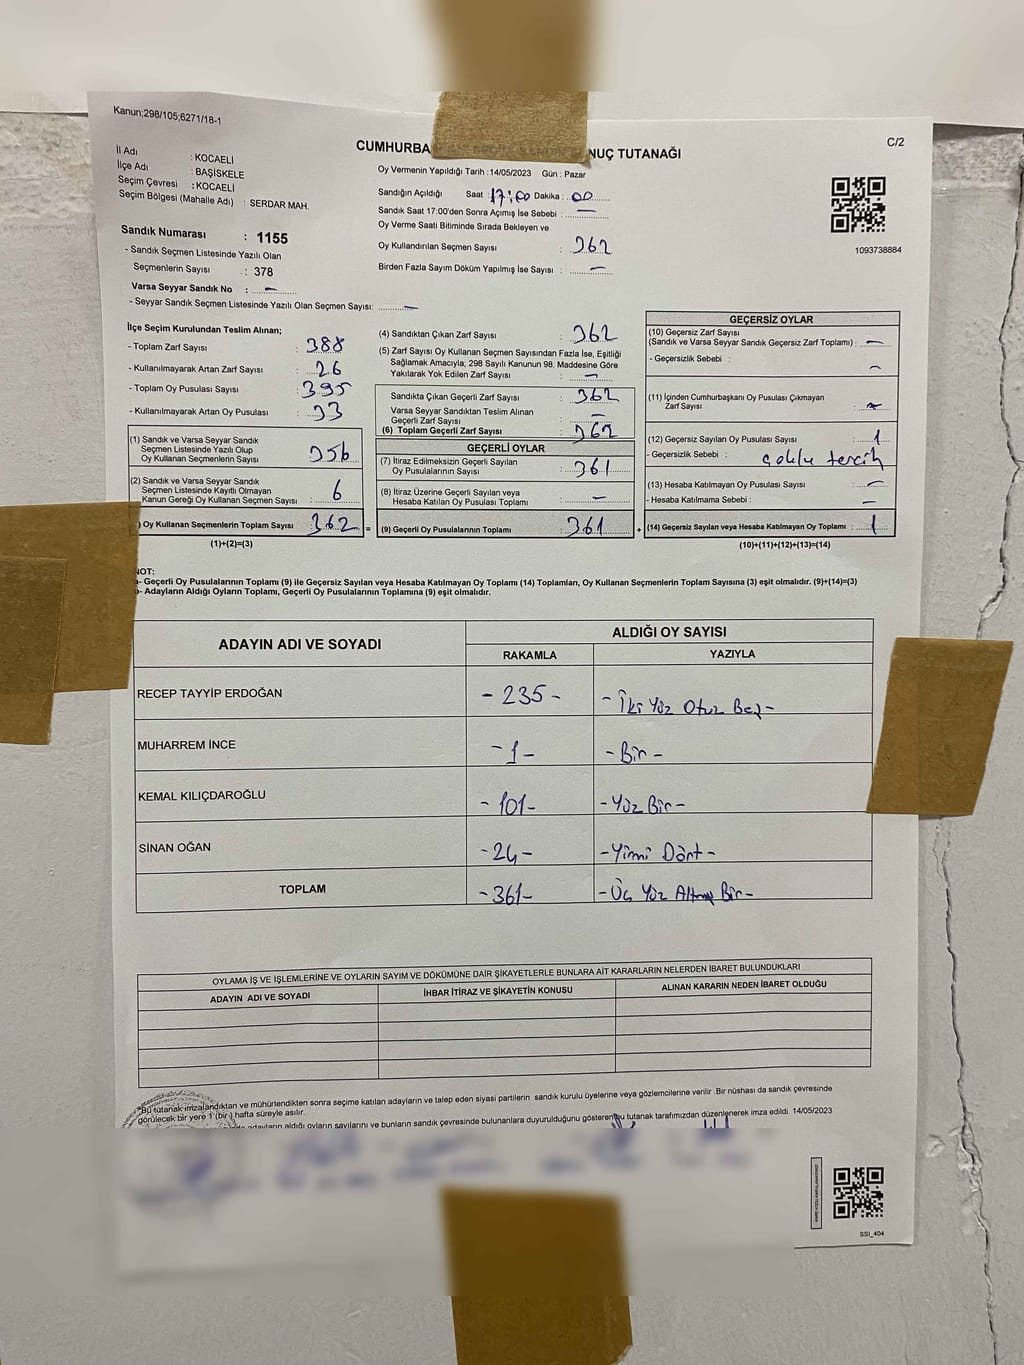 Kanun;298/105;6271/18-1
C/2
CUMHURBA NUÇ TUTANAĞI
İl Adı : KOCAELİ
İlçe Adı : BAŞİSKELE
Seçim Çevresi : KOCAELİ
Seçim Bölgesi (Mahalle Adı) : SERDAR MAH.
Sandık Numarası : 1155
- Sandık Seçmen Listesinde Yazılı Olan
Seçmenlerin Sayısı : 378
Varsa Seyyar Sandık No : -
- Seyyar Sandık Seçmen Listesinde Yazılı Olan Seçmen Sayısı: -
Oy Vermenin Yapıldığı Tarih : 14/05/2023 Gün : Pazar
Sandığın Açıldığı Saat : 17:00 Dakika : 00
Sandık Saat 17:00'den Sonra Açımış İse Sebebi : -
Oy Verme Saati Bitiminde Sırada Bekleyen ve
Oy Kullandırılan Seçmen Sayısı : 362
Birden Fazla Sayım Döküm Yapılmış İse Sayısı : -
1093738884
İlçe Seçim Kurulundan Teslim Alınan;
- Toplam Zarf Sayısı : 388
- Kullanılmayarak Artan Zarf Sayısı : 26
- Toplam Oy Pusulası Sayısı : 395
- Kullanılmayarak Artan Oy Pusulası : 33
(1) Sandık ve Varsa Seyyar Sandık
Seçmen Listesinde Yazılı Olup
Oy Kullanan Seçmenlerin Sayısı : 356
(2) Sandık ve Varsa Seyyar Sandık
Seçmen Listesinde Kayıtlı Olmayan
Kanun Gereği Oy Kullanan Seçmen Sayısı : 6
) Oy Kullanan Seçmenlerin Toplam Sayısı : 362 =
(1)+(2)=(3)
(4) Sandıktan Çıkan Zarf Sayısı : 362
(5) Zarf Sayısı Oy Kullanan Seçmen Sayısından Fazla İse, Eşitliği
Sağlamak Amacıyla; 298 Sayılı Kanunun 98. Maddesine Göre
Yakılarak Yok Edilen Zarf Sayısı : -
Sandıkta Çıkan Geçerli Zarf Sayısı : 362
Varsa Seyyar Sandıktan Teslim Alınan
Geçerli Zarf Sayısı : -
(6) Toplam Geçerli Zarf Sayısı : 362
GEÇERLİ OYLAR
(7) İtiraz Edilmeksizin Geçerli Sayılan
Oy Pusulalarının Sayısı : 361
(8) İtiraz Üzerine Geçerli Sayılan veya
Hesaba Katılan Oy Pusulası Toplamı : -
(9) Geçerli Oy Pusulalarının Toplamı : 361 +
GEÇERSİZ OYLAR
(10) Geçersiz Zarf Sayısı
(Sandık ve Varsa Seyyar Sandık Geçersiz Zarf Toplamı) : -
- Geçersizlik Sebebi : -
(11) İçinden Cumhurbaşkanı Oy Pusulası Çıkmayan
Zarf Sayısı : -
(12) Geçersiz Sayılan Oy Pusulası Sayısı : 1
- Geçersizlik Sebebi : çoklu tercih
(13) Hesaba Katılmayan Oy Pusulası Sayısı : -
- Hesaba Katılmama Sebebi : -
(14) Geçersiz Sayılan veya Hesaba Katılmayan Oy Toplamı : 1
(10)+(11)+(12)+(13)=(14)
NOT:
a- Geçerli Oy Pusulalarının Toplamı (9) ile Geçersiz Sayılan veya Hesaba Katılmayan Oy Toplamı (14) Toplamları, Oy Kullanan Seçmenlerin Toplam Sayısına (3) eşit olmalıdır. (9)+(14)=(3)
b- Adayların Aldığı Oyların Toplamı, Geçerli Oy Pusulalarının Toplamına (9) eşit olmalıdır.
ADAYIN ADI VE SOYADI ALDIĞI OY SAYISI
RAKAMLA YAZIYLA
RECEP TAYYİP ERDOĞAN - 235 - - İki Yüz Otuz Beş -
MUHARREM İNCE - 1 - - Bir -
KEMAL KILIÇDAROĞLU - 101 - - Yüz Bir -
SİNAN OĞAN - 24 - - Yirmi Dört -
TOPLAM - 361 - - Üç Yüz Altmış Bir -
OYLAMA İŞ VE İŞLEMLERİNE VE OYLARIN SAYIM VE DÖKÜMÜNE DAİR ŞİKAYETLERLE BUNLARA AİT KARARLARIN NELERDEN İBARET BULUNDUKLARI
ADAYIN ADI VE SOYADI İHBAR İTİRAZ VE ŞİKAYETİN KONUSU ALINAN KARARIN NEDEN İBARET OLDUĞU
*Bu tutanak imzalandıktan ve mühürlendikten sonra seçime katılan adayların ve talep eden siyasi partilerin sandık kurulu üyelerine veya gözlemcilerine verilir. Bir nüshası da sandık çevresinde
görülecek bir yere 1 (bir ) hafta süreyle asılır.
adayların aldığı oyların sayılarını ve bunların sandık çevresinde bulunanlara duyurulduğunu gösteren bu tutanak tarafımızdan düzenlenerek imza edildi. 14/05/2023
SSI_404